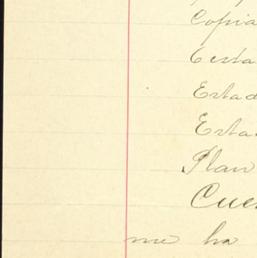 Copia
Testa
Estad
Esta
Plan
Cuen
me ha